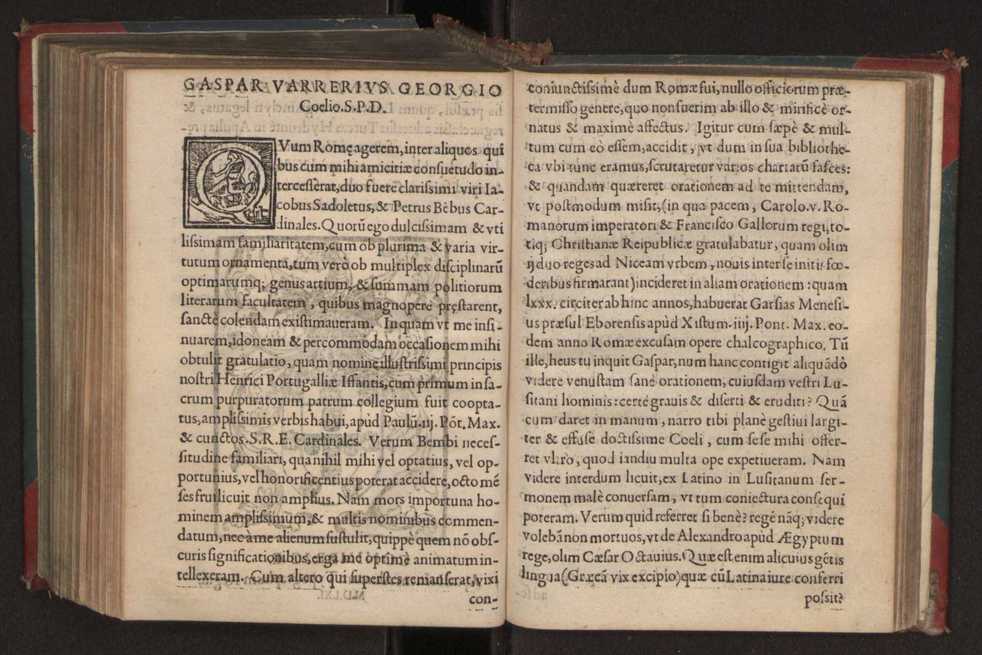 GASPAR VARRERIVS GEORGIO
Coelio.S.P.D.
QVum Romę agerem, inter aliquos qui
bus cum mihi amicitiæ consuetudo in-
tercesserat, duo fuere clarissimi viri Ia-
cobus Sadoletus, & Petrus Bēbus Car-
dinales. Quorū ego dulcissimam & vti
lissimam familiaritatem, cum ob plurima & varia vir-
tutum ornamenta, tum verò ob multiplex disciplinarū
optimarumq; genus artium, & summam politiorum
literarum facultatem, quibus magnopere pręstarent,
sanctè colendam existimaueram. In quam vt me insi-
nuarem, idoneam & percommodam occasionem mihi
obtulit gratulatio, quam nomine illustrissimi principis
nostri Henrici Portugalliæ Iffantis, cum primum in sa-
crum purpuratorum patrum collegium fuit coopta-
tus, amplissimis verbis habui, apùd Paulū.iij. Pōt. Max.
& cunctos. S. R. E. Cardinales. Verum Bembi neces-
situdine familiari, qua nihil mihi vel optatius, vel op-
portunius, vel honorificentius poterat accidere, octo mē
ses frui licuit non amplius. Nam mors importuna ho-
minem amplissimum, & multis nominibus commen-
datum, nec à me alienum sustulit, quippè quem nō obs-
curis significationibus, erga me optimè animatum in-
tellexeram. Cum altero qui superstes remanserat, vixi
con-
coniunctissimè dum Romæ fui, nullo officiorum præ-
termisso genere, quo non fuerim ab illo & mirificè or-
natus & maximè affectus. Igitur cum sæpè & mul-
tum cum eo essem, accidit, vt dum in sua bibliothe-
ca vbi tunc eramus, scrutaretur varios chartarū fasces:
& quandam quæreret orationem ad te mittendam,
vt postmodum misit, (in qua pacem, Carolo.v. Ro-
manorum imperatori & Francisco Gallorum regi, to-
tiq; Christianæ Reipublicæ gratulabatur, quam olim
ij duo reges ad Niceam vrbem, nouis inter se initis fœ-
deribus firmarant) incideret in aliam orationem: quam
lxxx. circiter ab hinc annos, habuerat Garsias Menesi-
us præsul Eborensis apùd Xistum.iiij. Pont. Max. eo-
dem anno Romæ excusam opere chalcographico. Tū
ille, heus tu inquit Gaspar, num hanc contigit aliquādò
videre venustam sanè orationem, cuiusdam vestri Lu-
sitani hominis: certè grauis & diserti & eruditi? Quā
cum daret in manum, narro tibi planè gestiui largi-
ter & effusè doctissime Coeli, cum sese mihi offer-
ret vltrò, quod iandiu multa ope expetiueram. Nam
videre interdum licuit, ex Latino in Lusitanum ser-
monem malè conuersam, vt tum coniectura consequi
poteram. Verum quid referret si benè? regē nāq; videre
volebā non mortuos, vt de Alexandro apùd Ægyptum
rege, olim Cæsar Octauius. Quæ est enim alicuius gētis
lingua (Græcā vix excipio) quæ cū Latina iure conferri
possit?